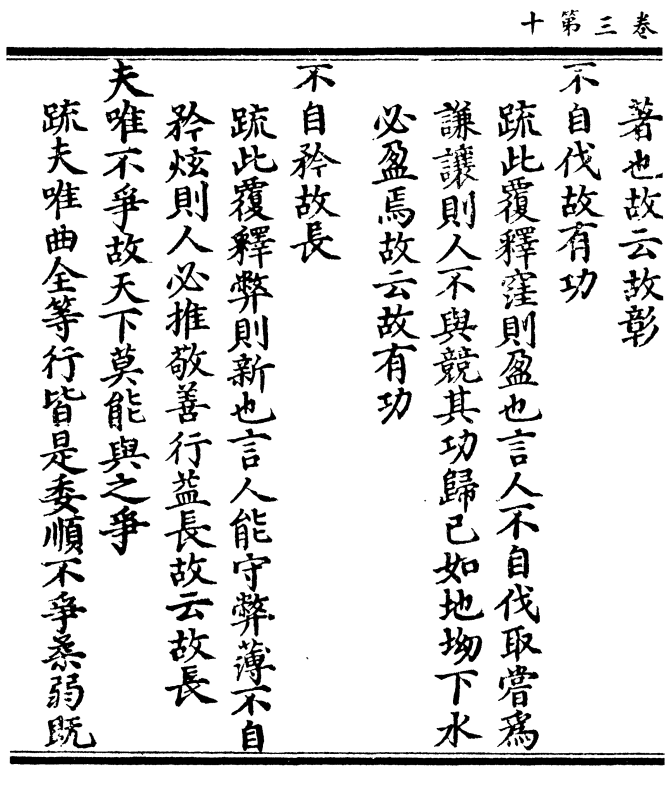 卷三第十
著也故云故彰
不自伐故有功
疏此覆釋窪則盈也言人不自伐取嘗爲
謙讓則人不與競其功歸已如地坳下水
必盈焉故云故有功
不自矜故長
疏此覆釋弊則新也言人能守弊薄不自
矜炫則人必推敬善行益長故云故長
夫唯不爭故天下莫能與之爭
疏夫唯曲全等行皆是委順不爭柔弱既